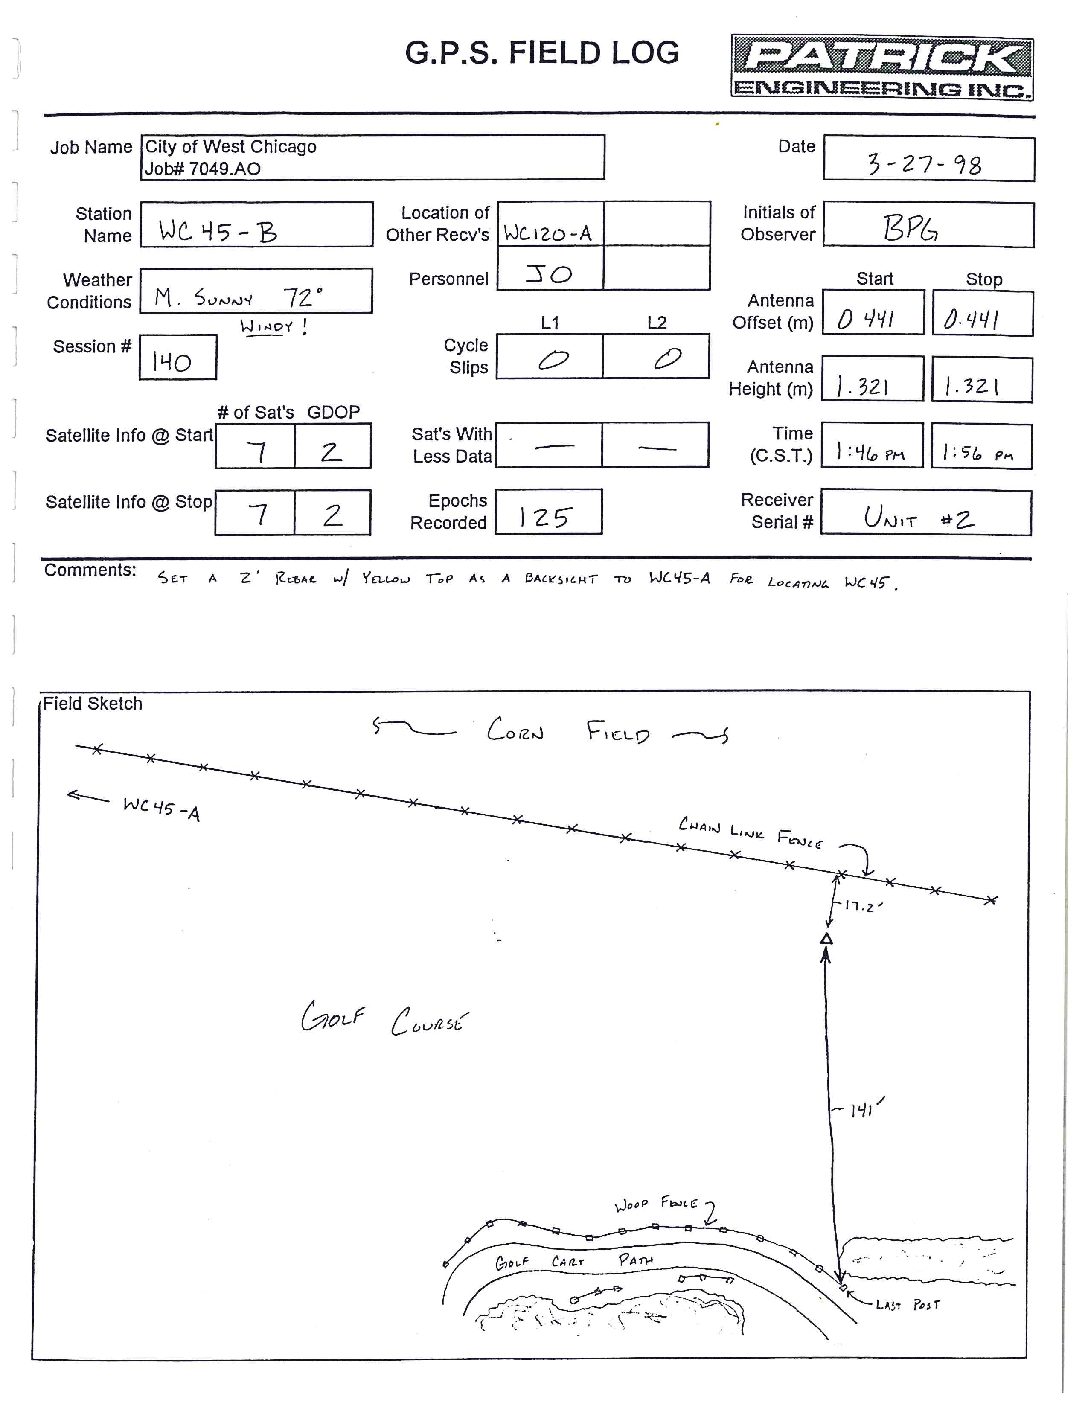 G.P.S. FIELD LOG
PATRICK
ENGINEERING INC.
Job Name City of West Chicago
Job# 7049.AO
Date 3-27-98
Station Name WC 45-B
Location of Other Recv's WC120-A
Initials of Observer BPG
Weather Conditions M. SUNNY 72°
WINDY!
Personnel JO
Start Stop
Antenna Offset (m) 0 441 0.441
Session # 140
L1 L2
Cycle Slips 0 0
Antenna Height (m) 1.321 1.321
# of Sat's GDOP
Satellite Info @ Start 7 2
Sat's With Less Data — —
Time (C.S.T.) 1:46 PM 1:56 PM
Satellite Info @ Stop 7 2
Epochs Recorded 125
Receiver Serial # UNIT #2
Comments: SET A 2' REBAR W/ YELLOW TOP AS A BACKSIGHT TO WC45-A FOR LOCATING WC45.
Field Sketch
CORN FIELD
WC45-A
CHAIN LINK FENCE
17.2'
GOLF COURSE
141'
WOOD FENCE
GOLF CART PATH
LAST POST